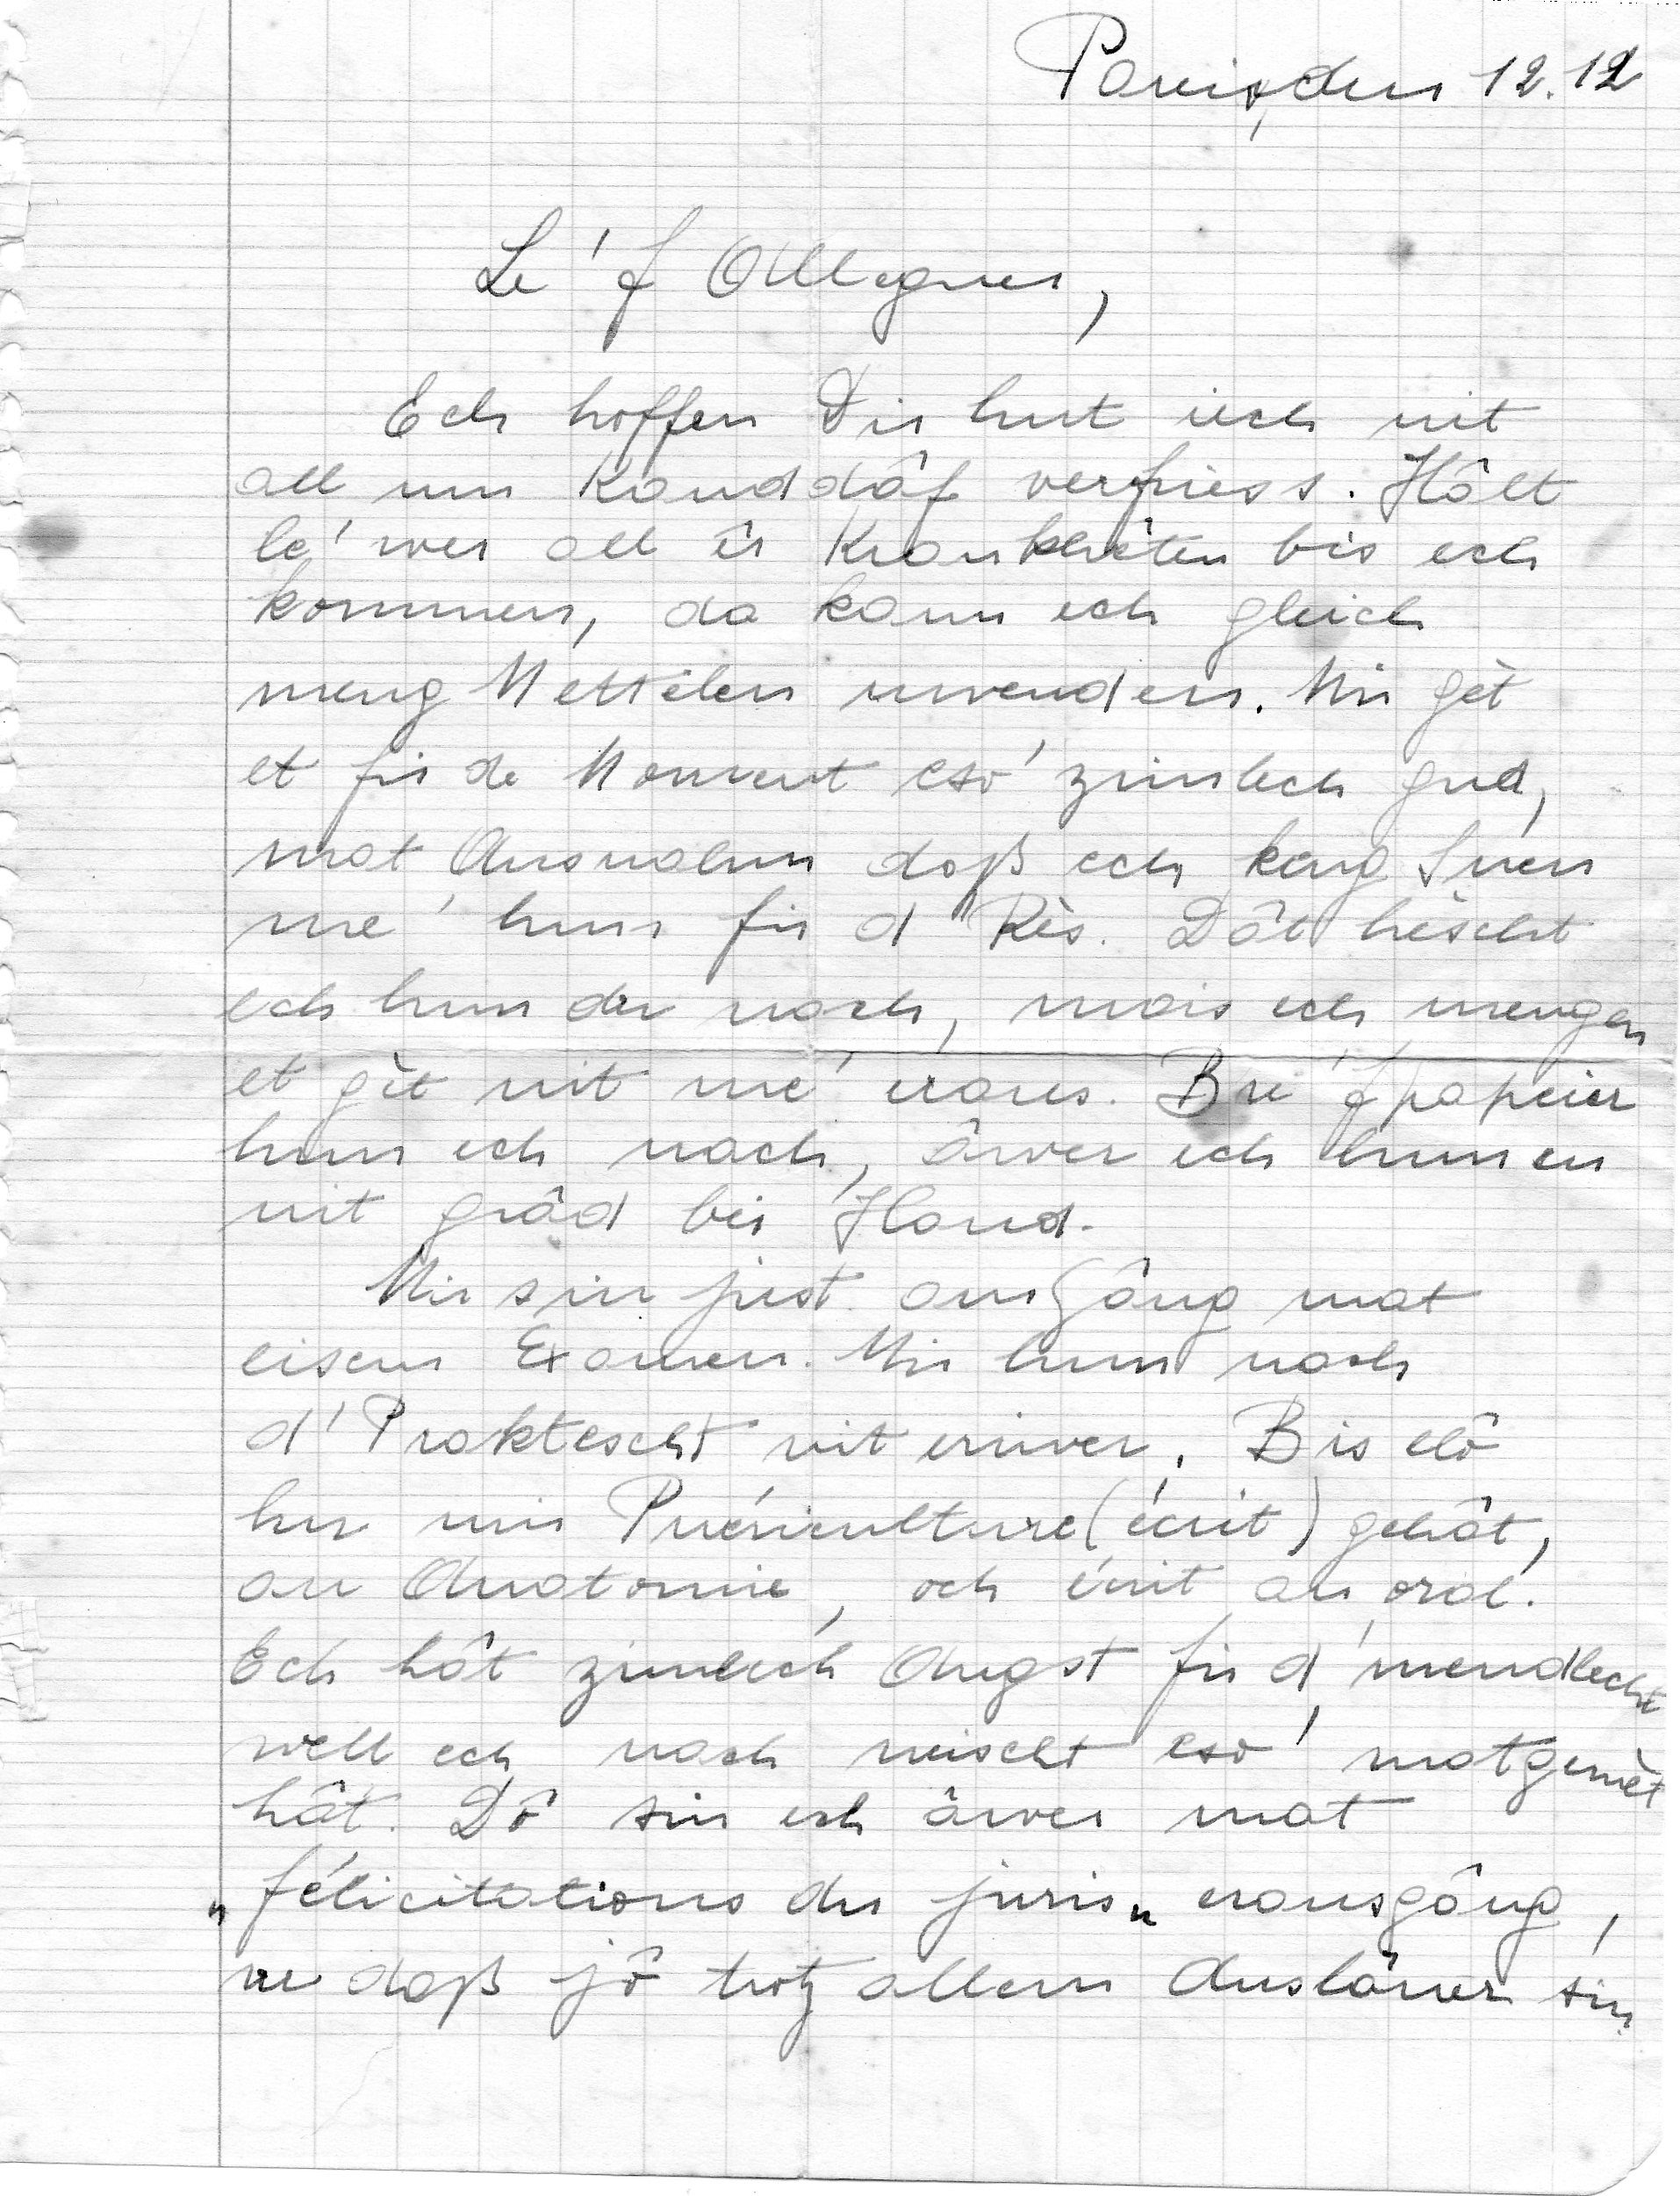 Pareis, den 12.12
Le'f Alleguer,
Ech hoffen Dir hut iech nit
all um Kanddâf verfriess. Hâlt
le'wer all är Krankhêten bis ech
kommen, da kann ech gleich
meng Mettelen uwenden. Mir gèt
et fir de Moment eso' zimlech gud,
mat Ausnahm daß ech keng Suen
me' hun fir d'Rès. Dât hèscht
ech hun der nach, mais ech mengen
et gèt nit me' erares. Bre'fpapeier
hun ech nach, âwer ech hun en
nit grâd bei Hand.
Mir sin just am Gâng mat
eisem Examen. Mir hun nach
d'Praktescht nit eriwer. Bis elô
hu mir Puériculture (écrit) gehât,
an Anatomie, och écrit an oral.
Ech hât zimlech Angst fir d'mendlecht
well ech nach neischt eso' matgemèt
hât. Dô sin ech âwer mat
„félicitations du juris„ erausgâng,
ne daß jô trotz allem Auslänner sin